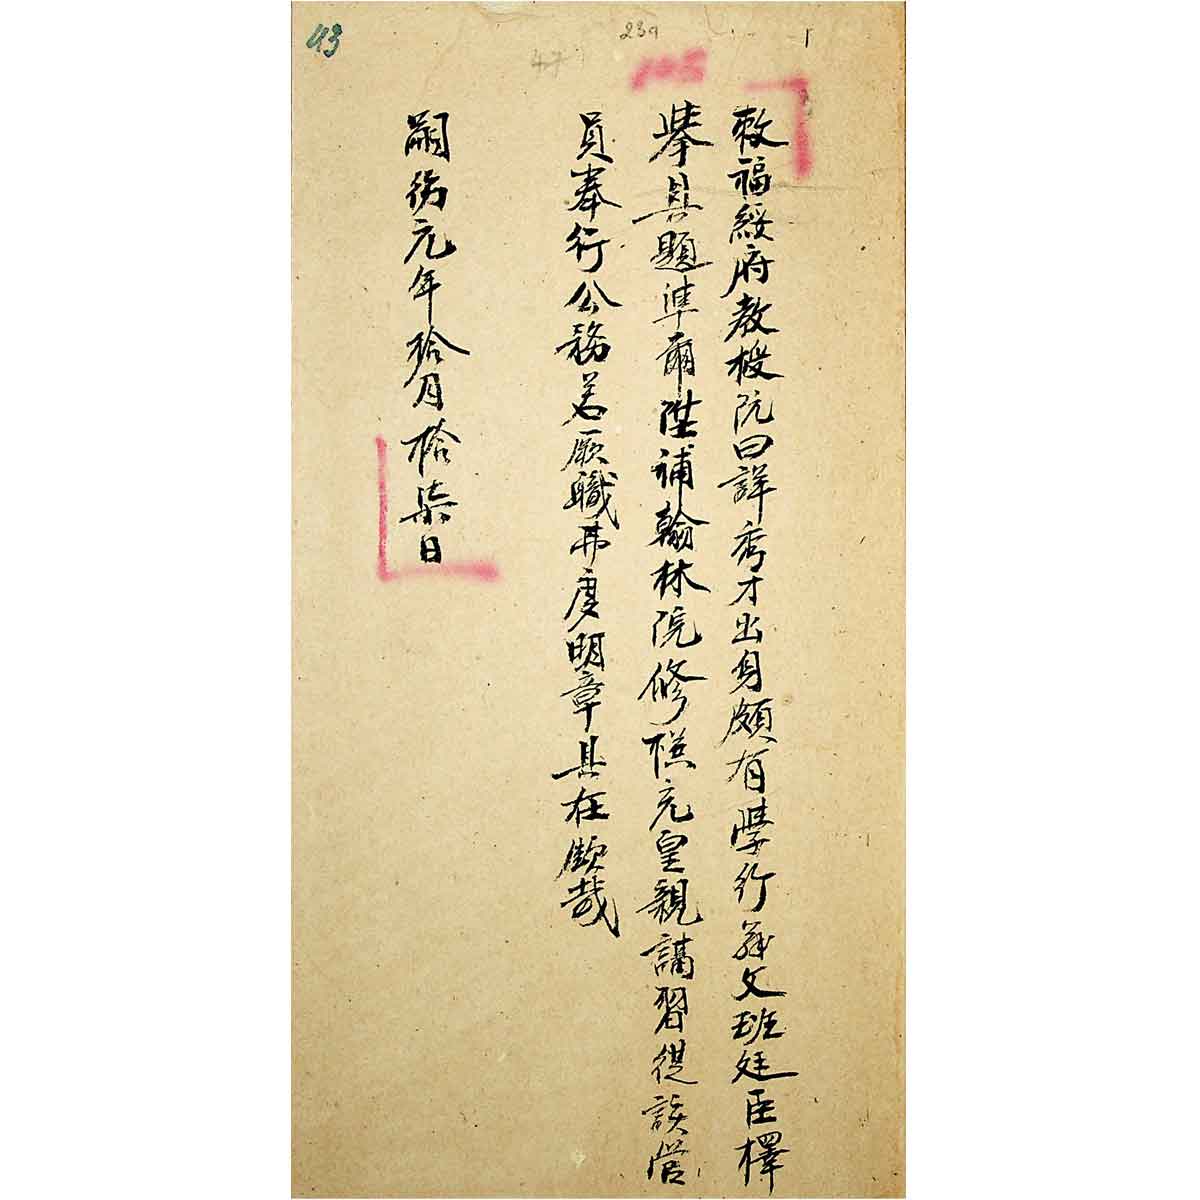 43
23a
47
敕福綏府教授阮曰詳秀才出身頗有學行茲文班廷臣擇
舉具題準爾陞補翰林院修撰充皇親講習從該管
員奉行公務若厥職弗虔明章具在欽哉
嗣德元年拾月拾柒日